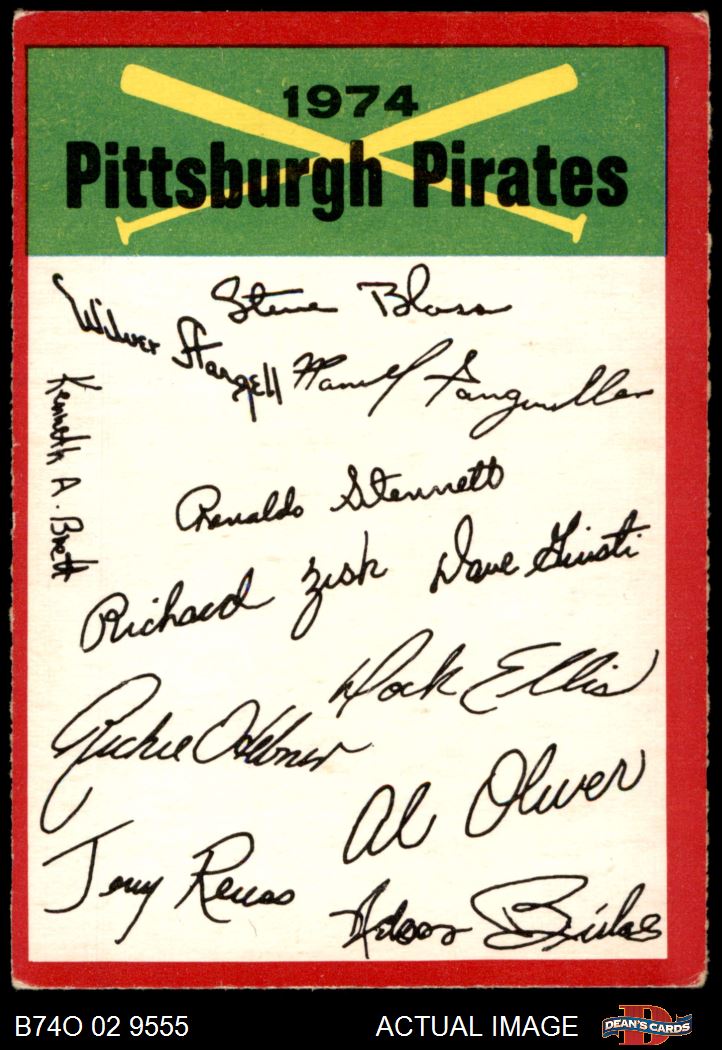 1974
Pittsburgh Pirates
Steve Blass
Wilver Stargell
Manuel Sanguillen
Kenneth A. Brett
Renaldo Stennett
Richard Zisk
Dave Giusti
Dock Ellis
Richie Hebner
Al Oliver
Jerry Reuss
Nelson Briles
B74O 02 9555
ACTUAL IMAGE
D
DEAN'S CARDS